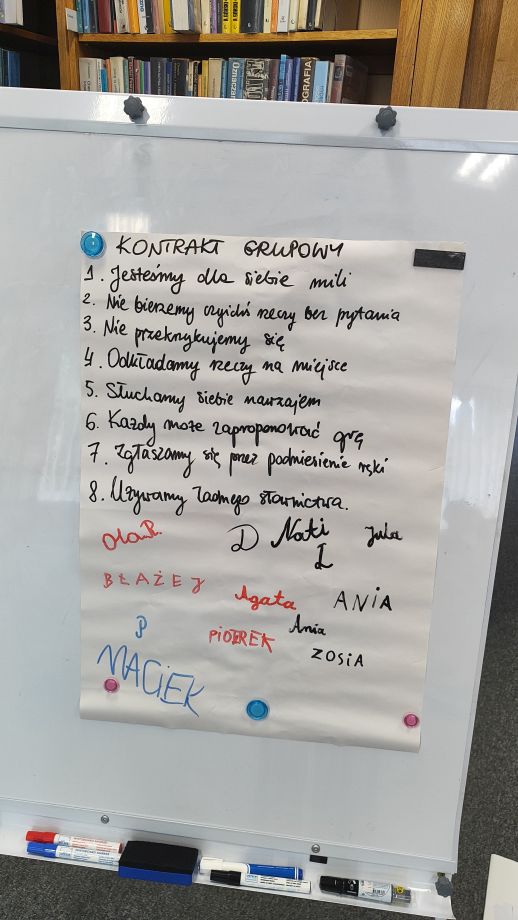 KONTRAKT GRUPOWY
1. Jesteśmy dla siebie mili
2. Nie bierzemy czyichś rzeczy bez pytania
3. Nie przekrzykujemy się
4. Odkładamy rzeczy na miejsce
5. Słuchamy siebie nawzajem
6. Każdy może zaproponować grę
7. Zgłaszamy się przez podniesienie ręki
8. Używamy ładnego słownictwa.
Ola.R.
D Nati Jula
I
BŁAŻEJ
Agata ANIA
Ania
P
PIOTREK
ZOSIA
MACIEK